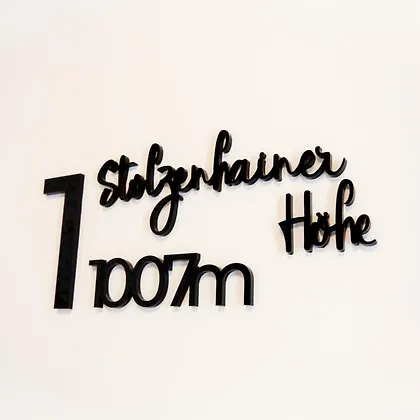 1
Stolzenhainer
Höhe
1007m